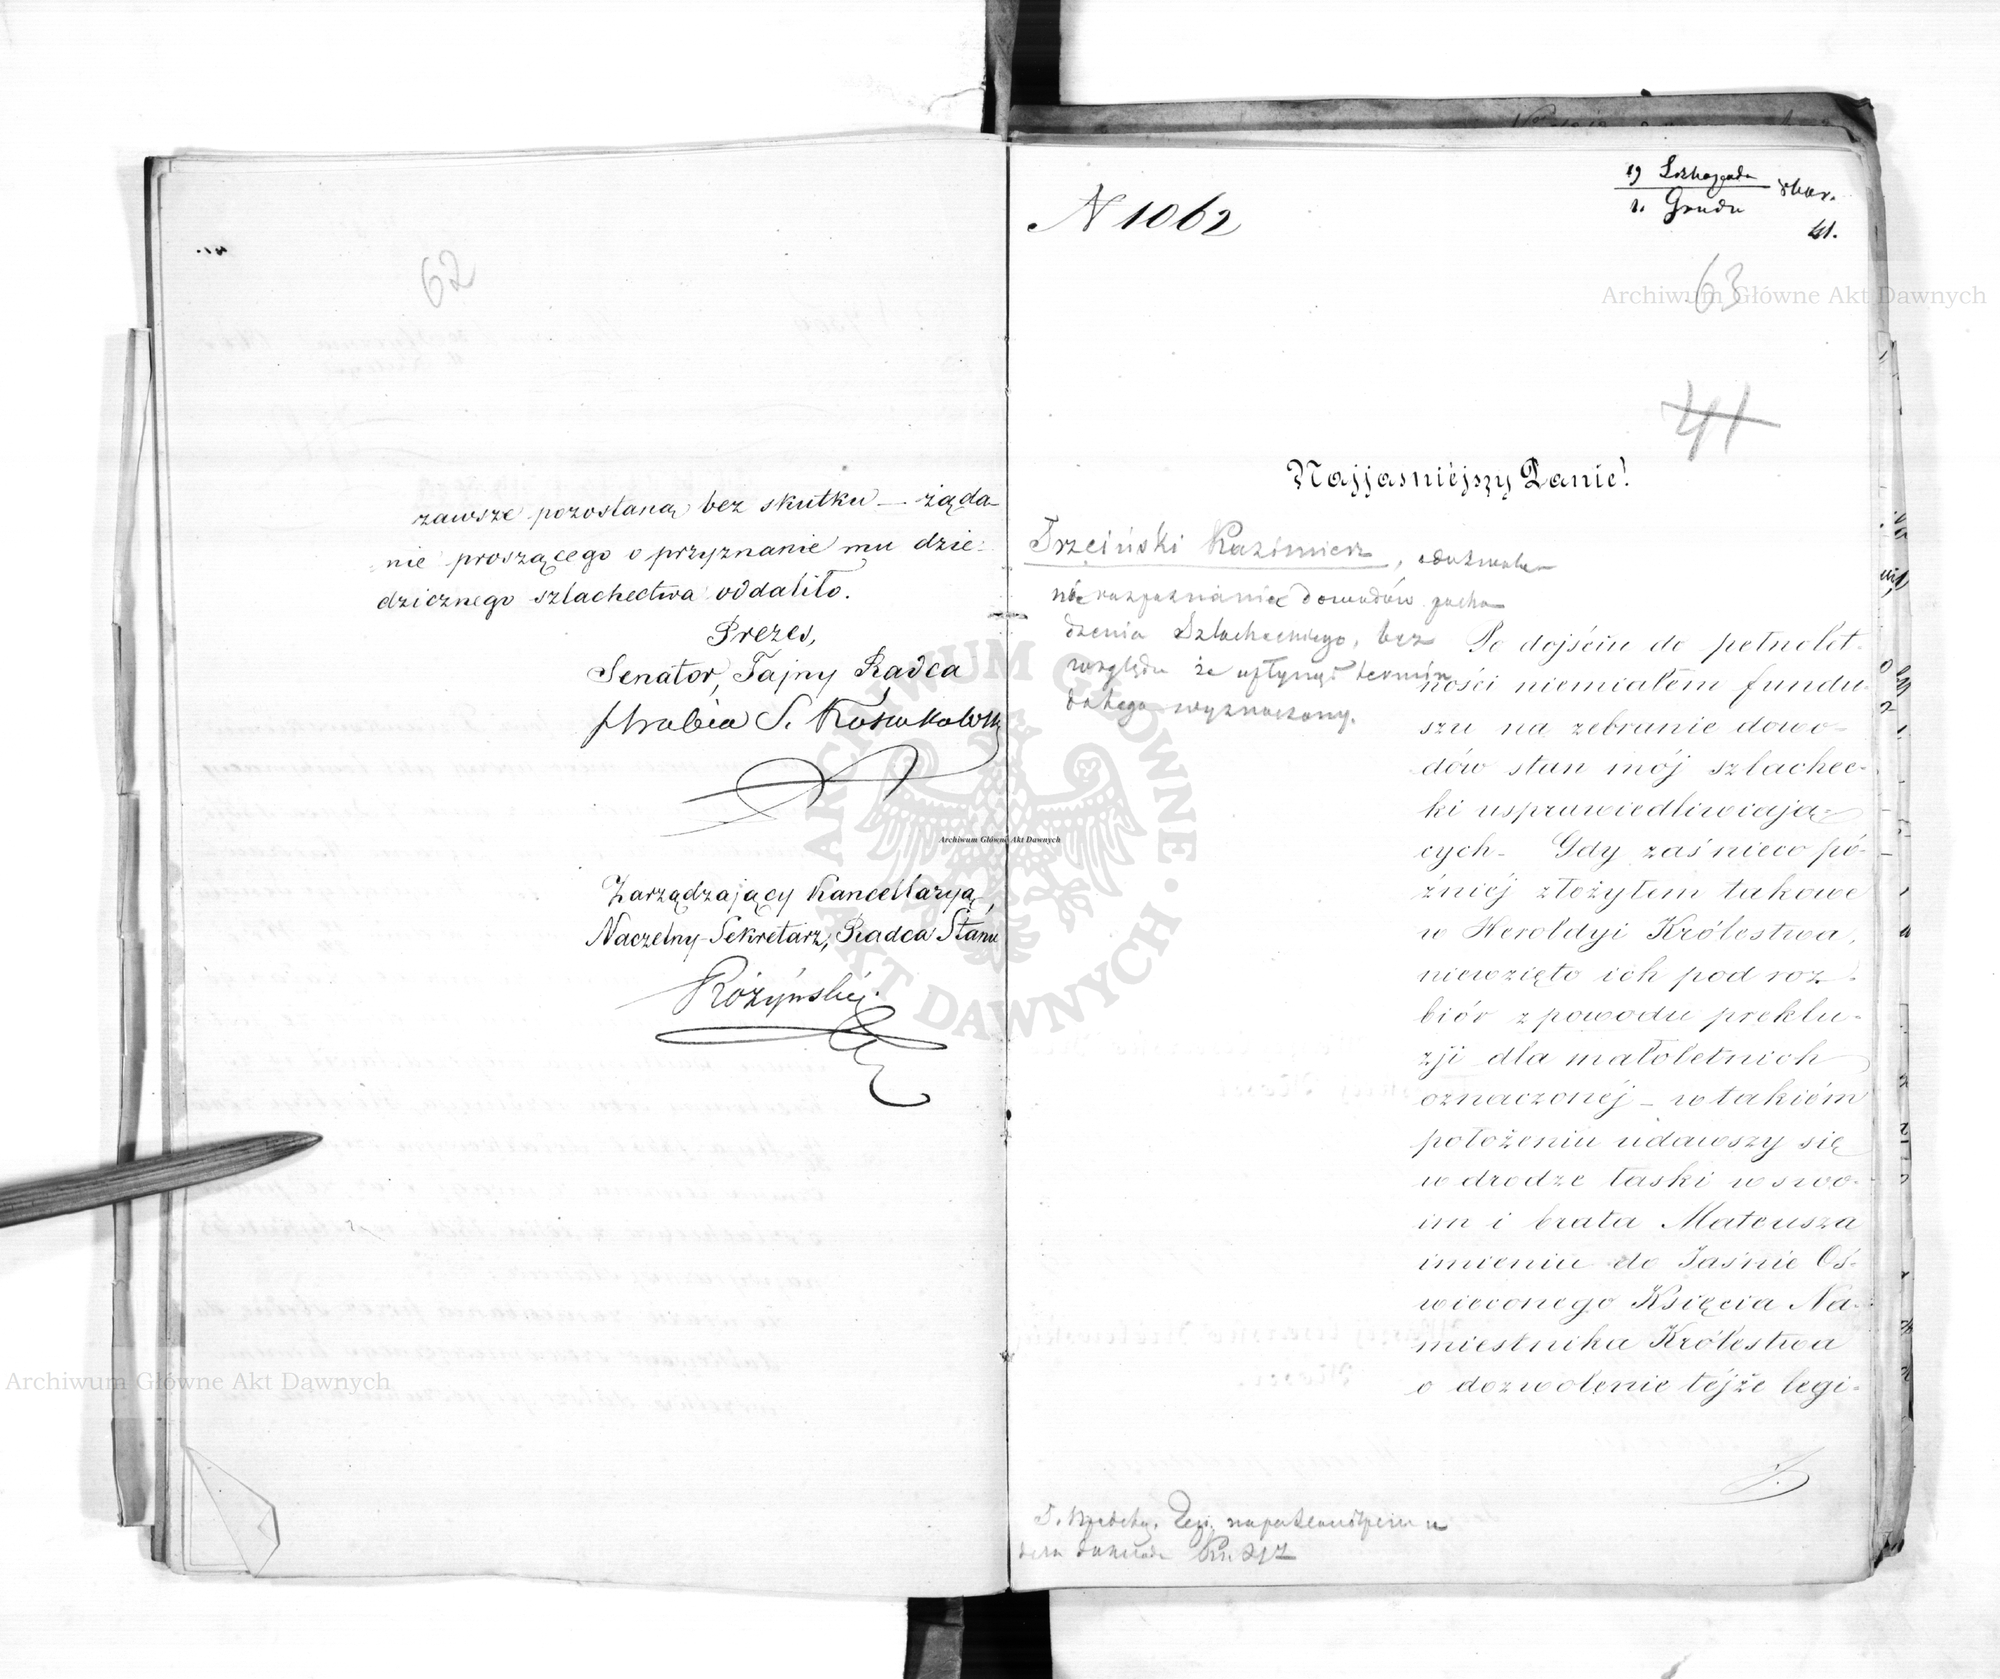 62
zawsze pozostaną bez skutku — żąda-
nie proszącego o przyznanie mu dzie-
dzicznego szlachectwa oddaliło.
Prezes,
Senator, Tajny Radca
Hrabia S. Kossakowski
Zarządzający Kancellaryą,
Naczelny Sekretarz, Radca Stanu
Różyński
N 1062
19 Listopada
1. Grudn
41.
63
41
Najjaśniéjszy Panie!
Trzciński Kazimierz,
nie rozpoznanie dowodów pocho
dzenia Szlacheckiego, bez
względu że upłynął termin
do tego wyznaczony.
Po dojściu do pełnolet-
ności niemiałem fundu-
szu na zebranie dowo-
dów stan mój szlachec-
ki usprawiedliwiają-
cych - Gdy zaś nieco pó-
źniéj złożyłem takowe
w Heroldyi Królestwa,
niewzięto ich pod roz-
biór z powodu preklu-
zji dla małoletnich
oznaczonéj - w takiém
położeniu udawszy się
w drodze łaski w swo-
im i brata Mateusza
imieniu do Jaśnie Oś-
wieconego Księcia Na-
miestnika Królestwa
o dozwolenie téjże legi-
Archiwum Główne Akt Dawnych
Archiwum Główne Akt Dawnych
Archiwum Główne Akt Dawnych
ARCHIWUM GŁÓWNE AKT DAWNYCH